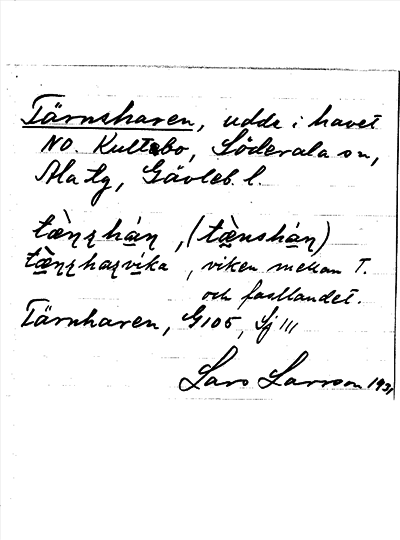 Tärnsharen, udde i havet
NO Kultebo, Söderala sn,
Ala tg, Gävleb. l.
tæ̀ɳʂhán, (tæ̀nshán)
viken mellan T.
och fastlandet.
Tärnharen, G105, Sj III
Lars Larsson 1931